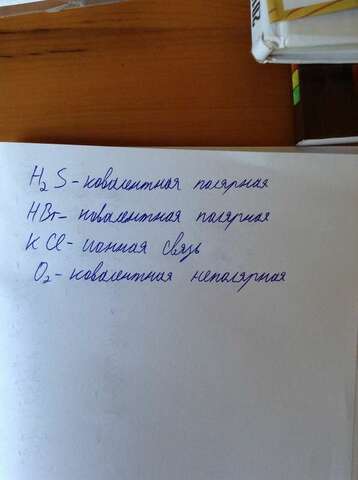 H₂S - ковалентная полярная
HBr - ковалентная полярная
KCl - ионная связь
O₂ - ковалентная неполярная